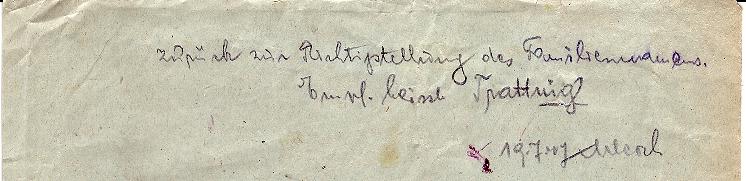 zurück zur Richtigstellung des Familiennamens.
Empf. heisst Trattnig
19.7.